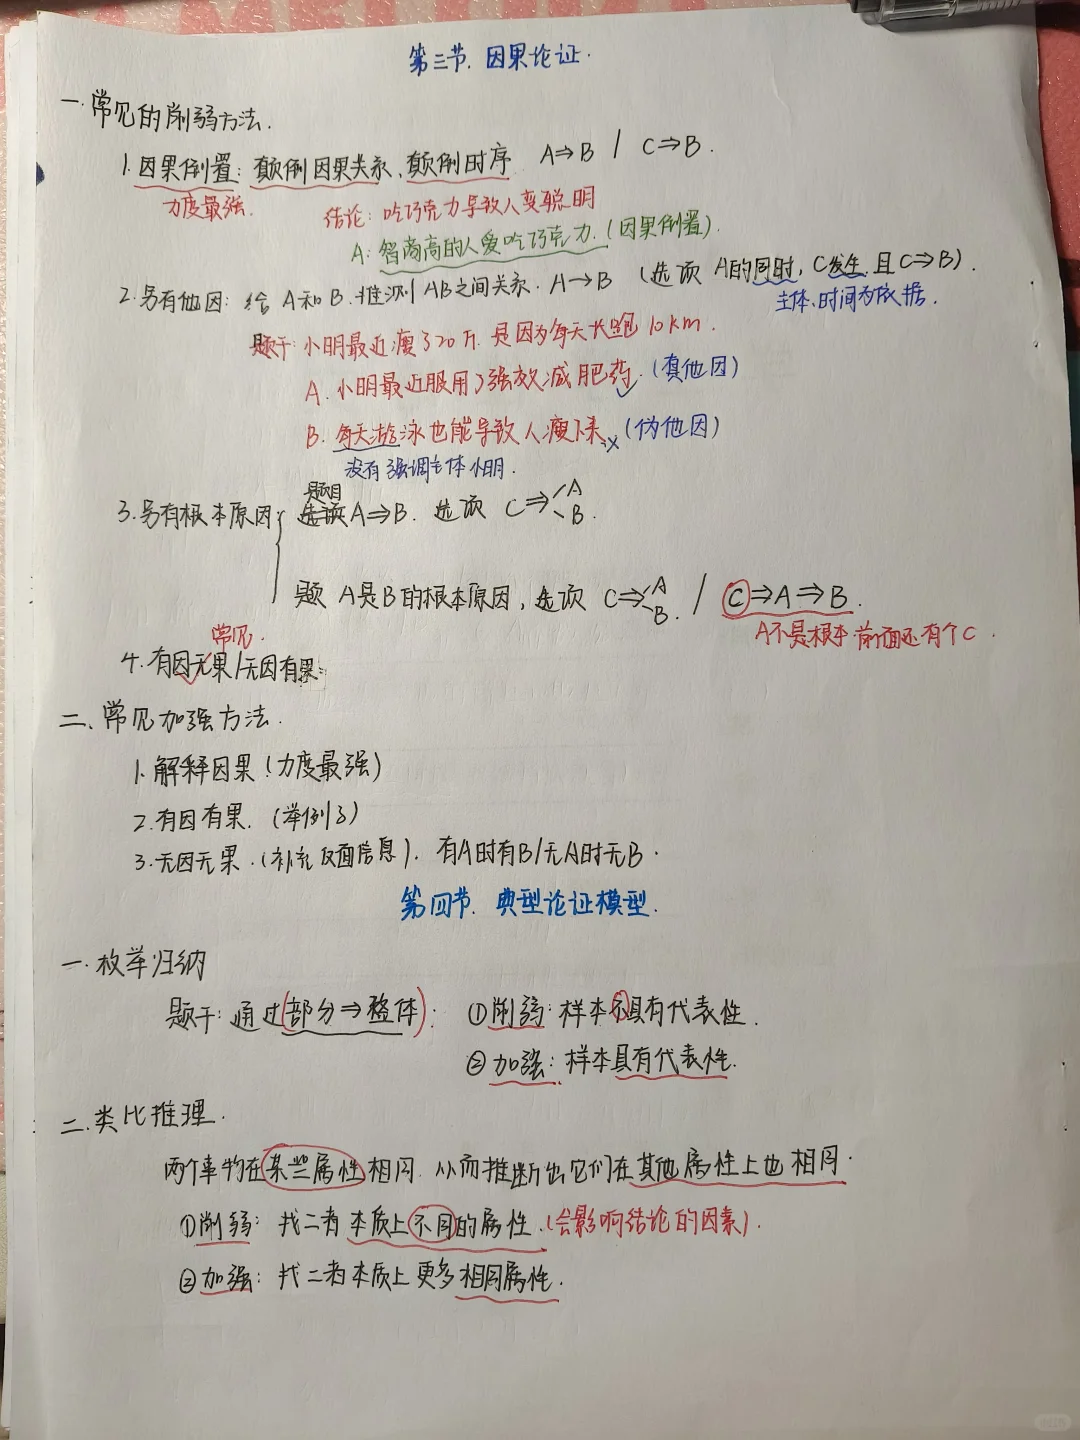 第三节. 因果论证.
一.常见的削弱方法.
1.因果倒置: 颠倒因果关系、颠倒时序 A⇒B / C⇒B.
力度最强. 结论: 吃巧克力导致人变聪明
A: 智商高的人爱吃巧克力.(因果倒置).
2.另有他因: 给A和B.推测AB之间关系. A→B (选项 A的同时, C发生 且C⇒B).
主体、时间为依据.
题干: 小明最近瘦了20斤. 是因为每天长跑 10km.
A. 小明最近服用了强效减肥药.(真他因)
B. 每天游泳也能导致人瘦下来.× (伪他因)
没有强调主体小明.
题目
3.另有根本原因 选项 A⇒B. 选项 C⇒A B.
题 A是B的根本原因, 选项 C⇒A B. / C⇒A⇒B.
A不是根本 前面还有个C.
常见.
4.有因无果/无因有果.
二、常见加强方法.
1.解释因果(力度最强)
2.有因有果. (举例子)
3.无因无果.(补充反面信息). 有A时有B/无A时无B.
第四节. 典型论证模型.
一.枚举归纳
题干: 通过(部分⇒整体): ①削弱: 样本不具有代表性.
②加强: 样本具有代表性.
二.类比推理.
两个事物在某些属性相同. 从而推断出它们在其他属性上也相同.
①削弱: 找二者本质上不同的属性.(会影响结论的因素).
②加强: 找二者本质上更多相同属性.